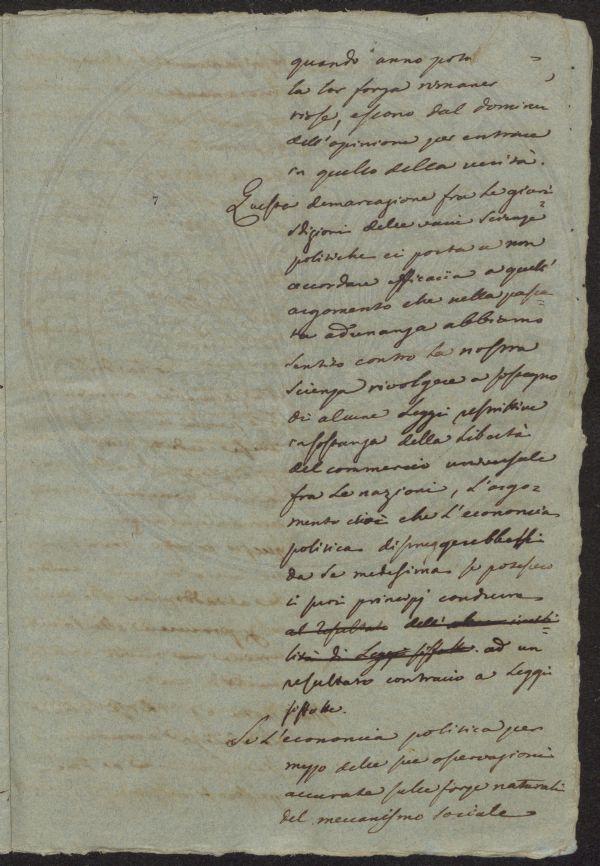 quando anno poter
la lor forza rimaner
visse, escono dal dominio
dell'opinione per entrare
in quello della verità.
Questa demarcazione fra le giuri=
sdizioni delle varie scienze
politiche ci porta a non
accordare efficacia a quell'
argomento che nella passa=
ta adunanza abbiamo
sentito contro la nostra
scienza rivolgere a sostegno
di alcune Leggi restrittive
in sostanza della Libertà
del commercio universale
fra le nazioni, l'argo=
mento cioè che l'economia
politica distruggerebbesi
da se medesima se potessero
i suoi principj condurre
al resultato dell' inuti=
lità di Leggi siffatte. ad un
resultato contrario a Leggi
siffatte.
Se l'economia politica per
mezzo delle sue osservazioni
accurate sulle forze naturali
del meccanismo sociale